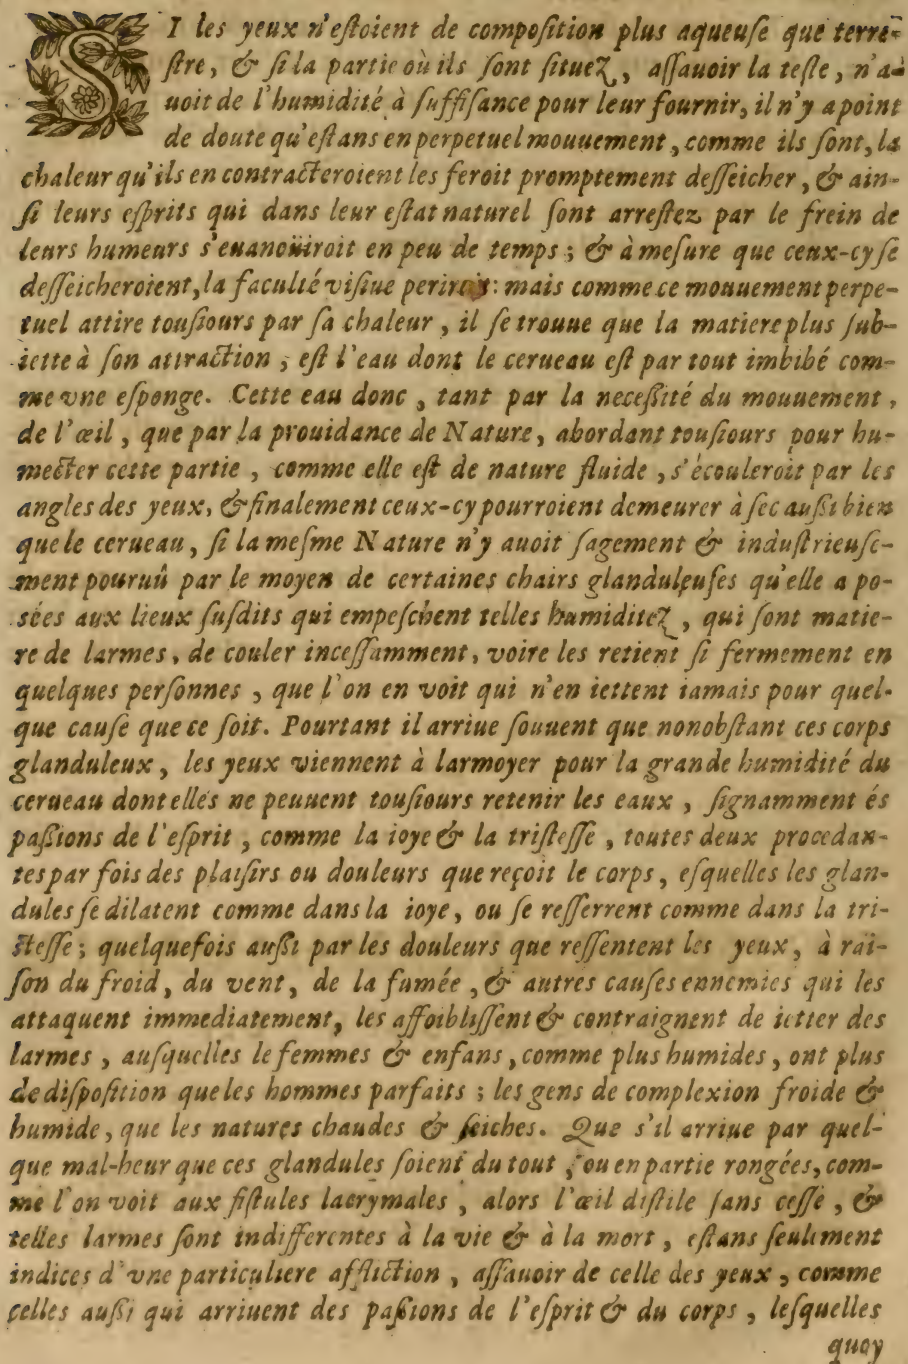 SI les yeux n'eſtoient de compoſition plus aqueuſe que terre-
ſtre, & ſi la partie où ils ſont ſituez, aſſauoir la teſte, n'a-
uoit de l'humidité à ſuffiſance pour leur fournir, il n'y a point
de doute qu'eſtans en perpetuel mouuement, comme ils ſont, la
chaleur qu'ils en contracteroient les feroit promptement deſſeicher, & ain-
ſi leurs eſprits qui dans leur eſtat naturel ſont arreſtez par le frein de
leurs humeurs s'euanoüiroit en peu de temps; & à meſure que ceux-cy ſe
deſſeicheroient, la faculté viſiue periroit: mais comme ce mouuement perpe-
tuel attire touſiours par ſa chaleur, il ſe trouue que la matiere plus ſub-
iette à ſon attraction, eſt l'eau dont le cerueau eſt par tout imbibé com-
me vne eſponge. Cette eau donc, tant par la neceſſité du mouuement,
de l'œil, que par la prouidance de Nature, abordant touſiours pour hu-
mecter cette partie, comme elle eſt de nature fluide, s'écouleroit par les
angles des yeux, & finalement ceux-cy pourroient demeurer à ſec auſſi bien
que le cerueau, ſi la meſme Nature n'y auoit ſagement & induſtrieuſe-
ment pouruû par le moyen de certaines chairs glanduleuſes qu'elle a po-
sées aux lieux ſuſdits qui empeſchent telles humiditez, qui ſont matie-
re de larmes, de couler inceſſamment, voire les retient ſi fermement en
quelques perſonnes, que l'on en voit qui n'en iettent iamais pour quel-
que cauſe que ce ſoit. Pourtant il arriue ſouuent que nonobſtant ces corps
glanduleux, les yeux viennent à larmoyer pour la grande humidité du
cerueau dont elles ne peuuent touſiours retenir les eaux, ſignamment és
paſſions de l'eſprit, comme la ioye & la triſteſſe, toutes deux procedan-
tes par fois des plaiſirs ou douleurs que reçoit le corps, eſquelles les glan-
dules ſe dilatent comme dans la ioye, ou ſe reſſerrent comme dans la tri-
ſteſſe; quelquefois auſſi par les douleurs que reſſentent les yeux, à rai-
ſon du froid, du vent, de la fumée, & autres cauſes ennemies qui les
attaquent immediatement, les affoibliſſent & contraignent de ietter des
larmes, auſquelles le femmes & enfans, comme plus humides, ont plus
de diſpoſition que les hommes parfaits; les gens de complexion froide &
humide, que les natures chaudes & ſeiches. Que s'il arriue par quel-
que mal-heur que ces glandules ſoient du tout, ou en partie rongées, com-
me l'on voit aux fiſtules lacrymales, alors l'œil diſtile ſans ceſſe, &
telles larmes ſont indifferentes à la vie & à la mort, eſtans ſeulement
indices d'vne particuliere affliction, aſſauoir de celle des yeux, comme
celles auſſi qui arriuent des paſſions de l'eſprit & du corps, leſquelles
quoy